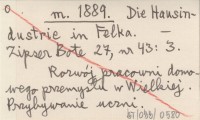 m. 1889. Die Hausin-
dustrie in Felka. —
Zipser Bote 27, nr 43: 3.
Rozwój pracowni domo-
wego przemysłu w Wielkiej.
Przybywanie uczni.